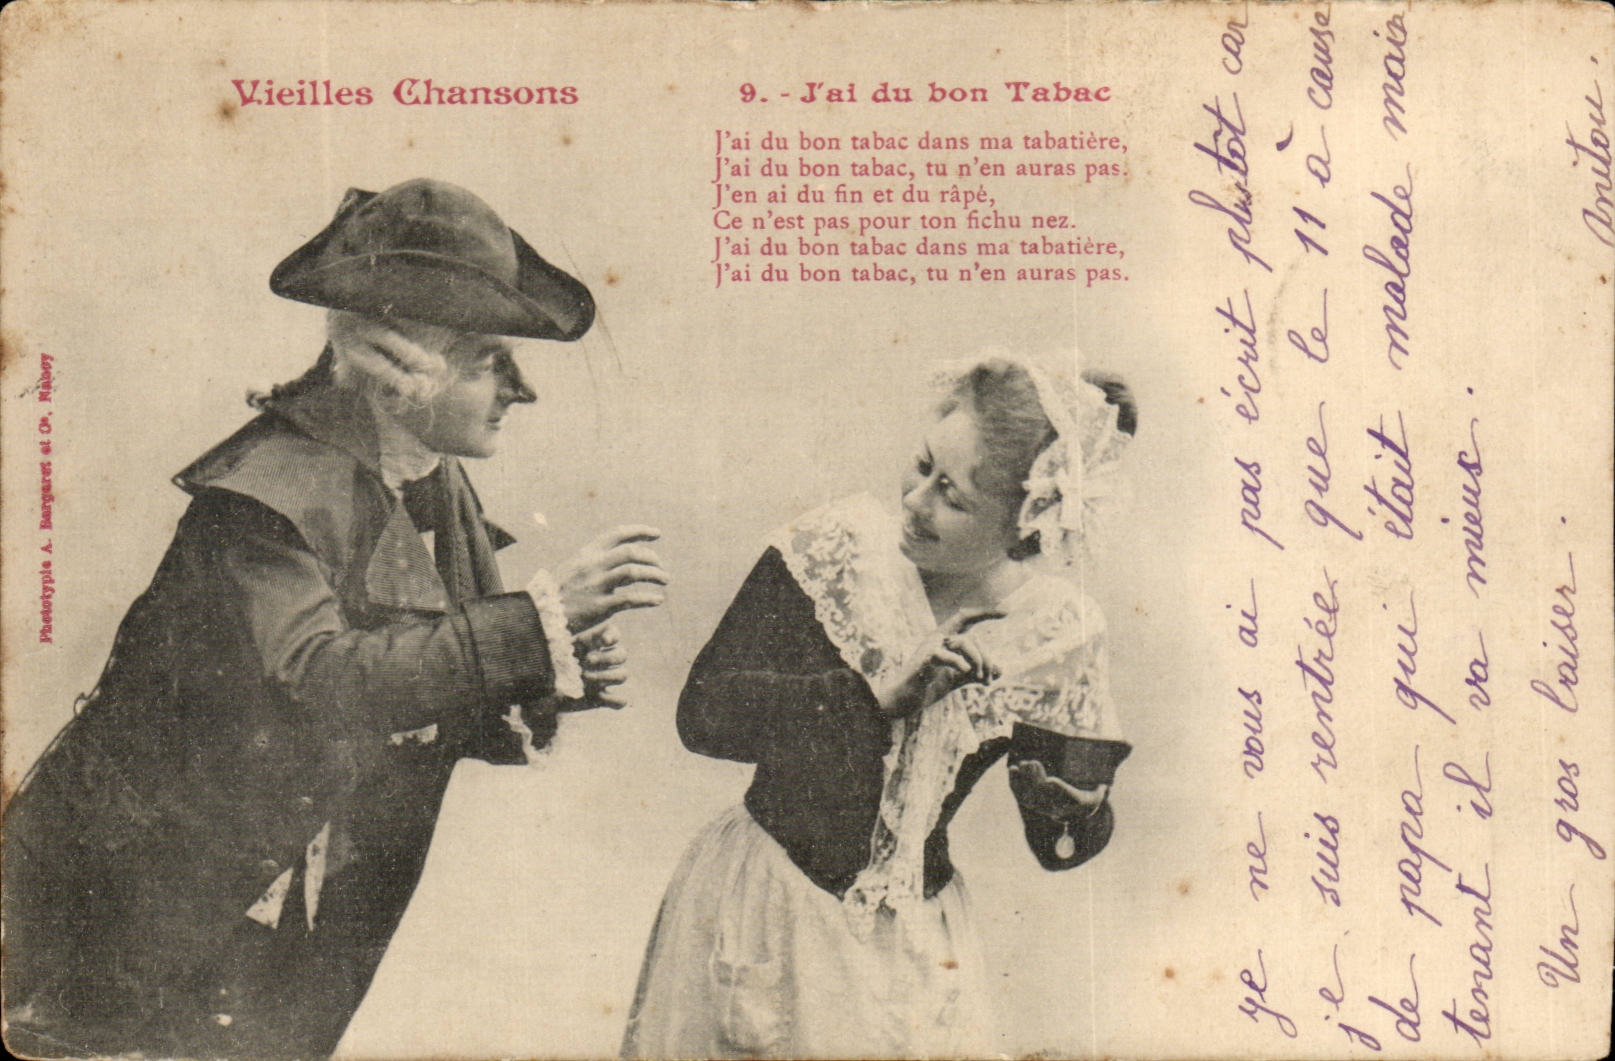 Vieilles Chansons
9. - J'ai du bon Tabac
J'ai du bon tabac dans ma tabatière,
J'ai du bon tabac, tu n'en auras pas.
J'en ai du fin et du râpé,
Ce n'est pas pour ton fichu nez.
J'ai du bon tabac dans ma tabatière,
J'ai du bon tabac, tu n'en auras pas.
Phototypie A. Bergeret et Cie, Nancy
je ne vous ai pas écrit plustôt car
je suis rentrée que le 11 à cause
de papa qui était malade main
tenant il va mieux.
Un gros baiser.